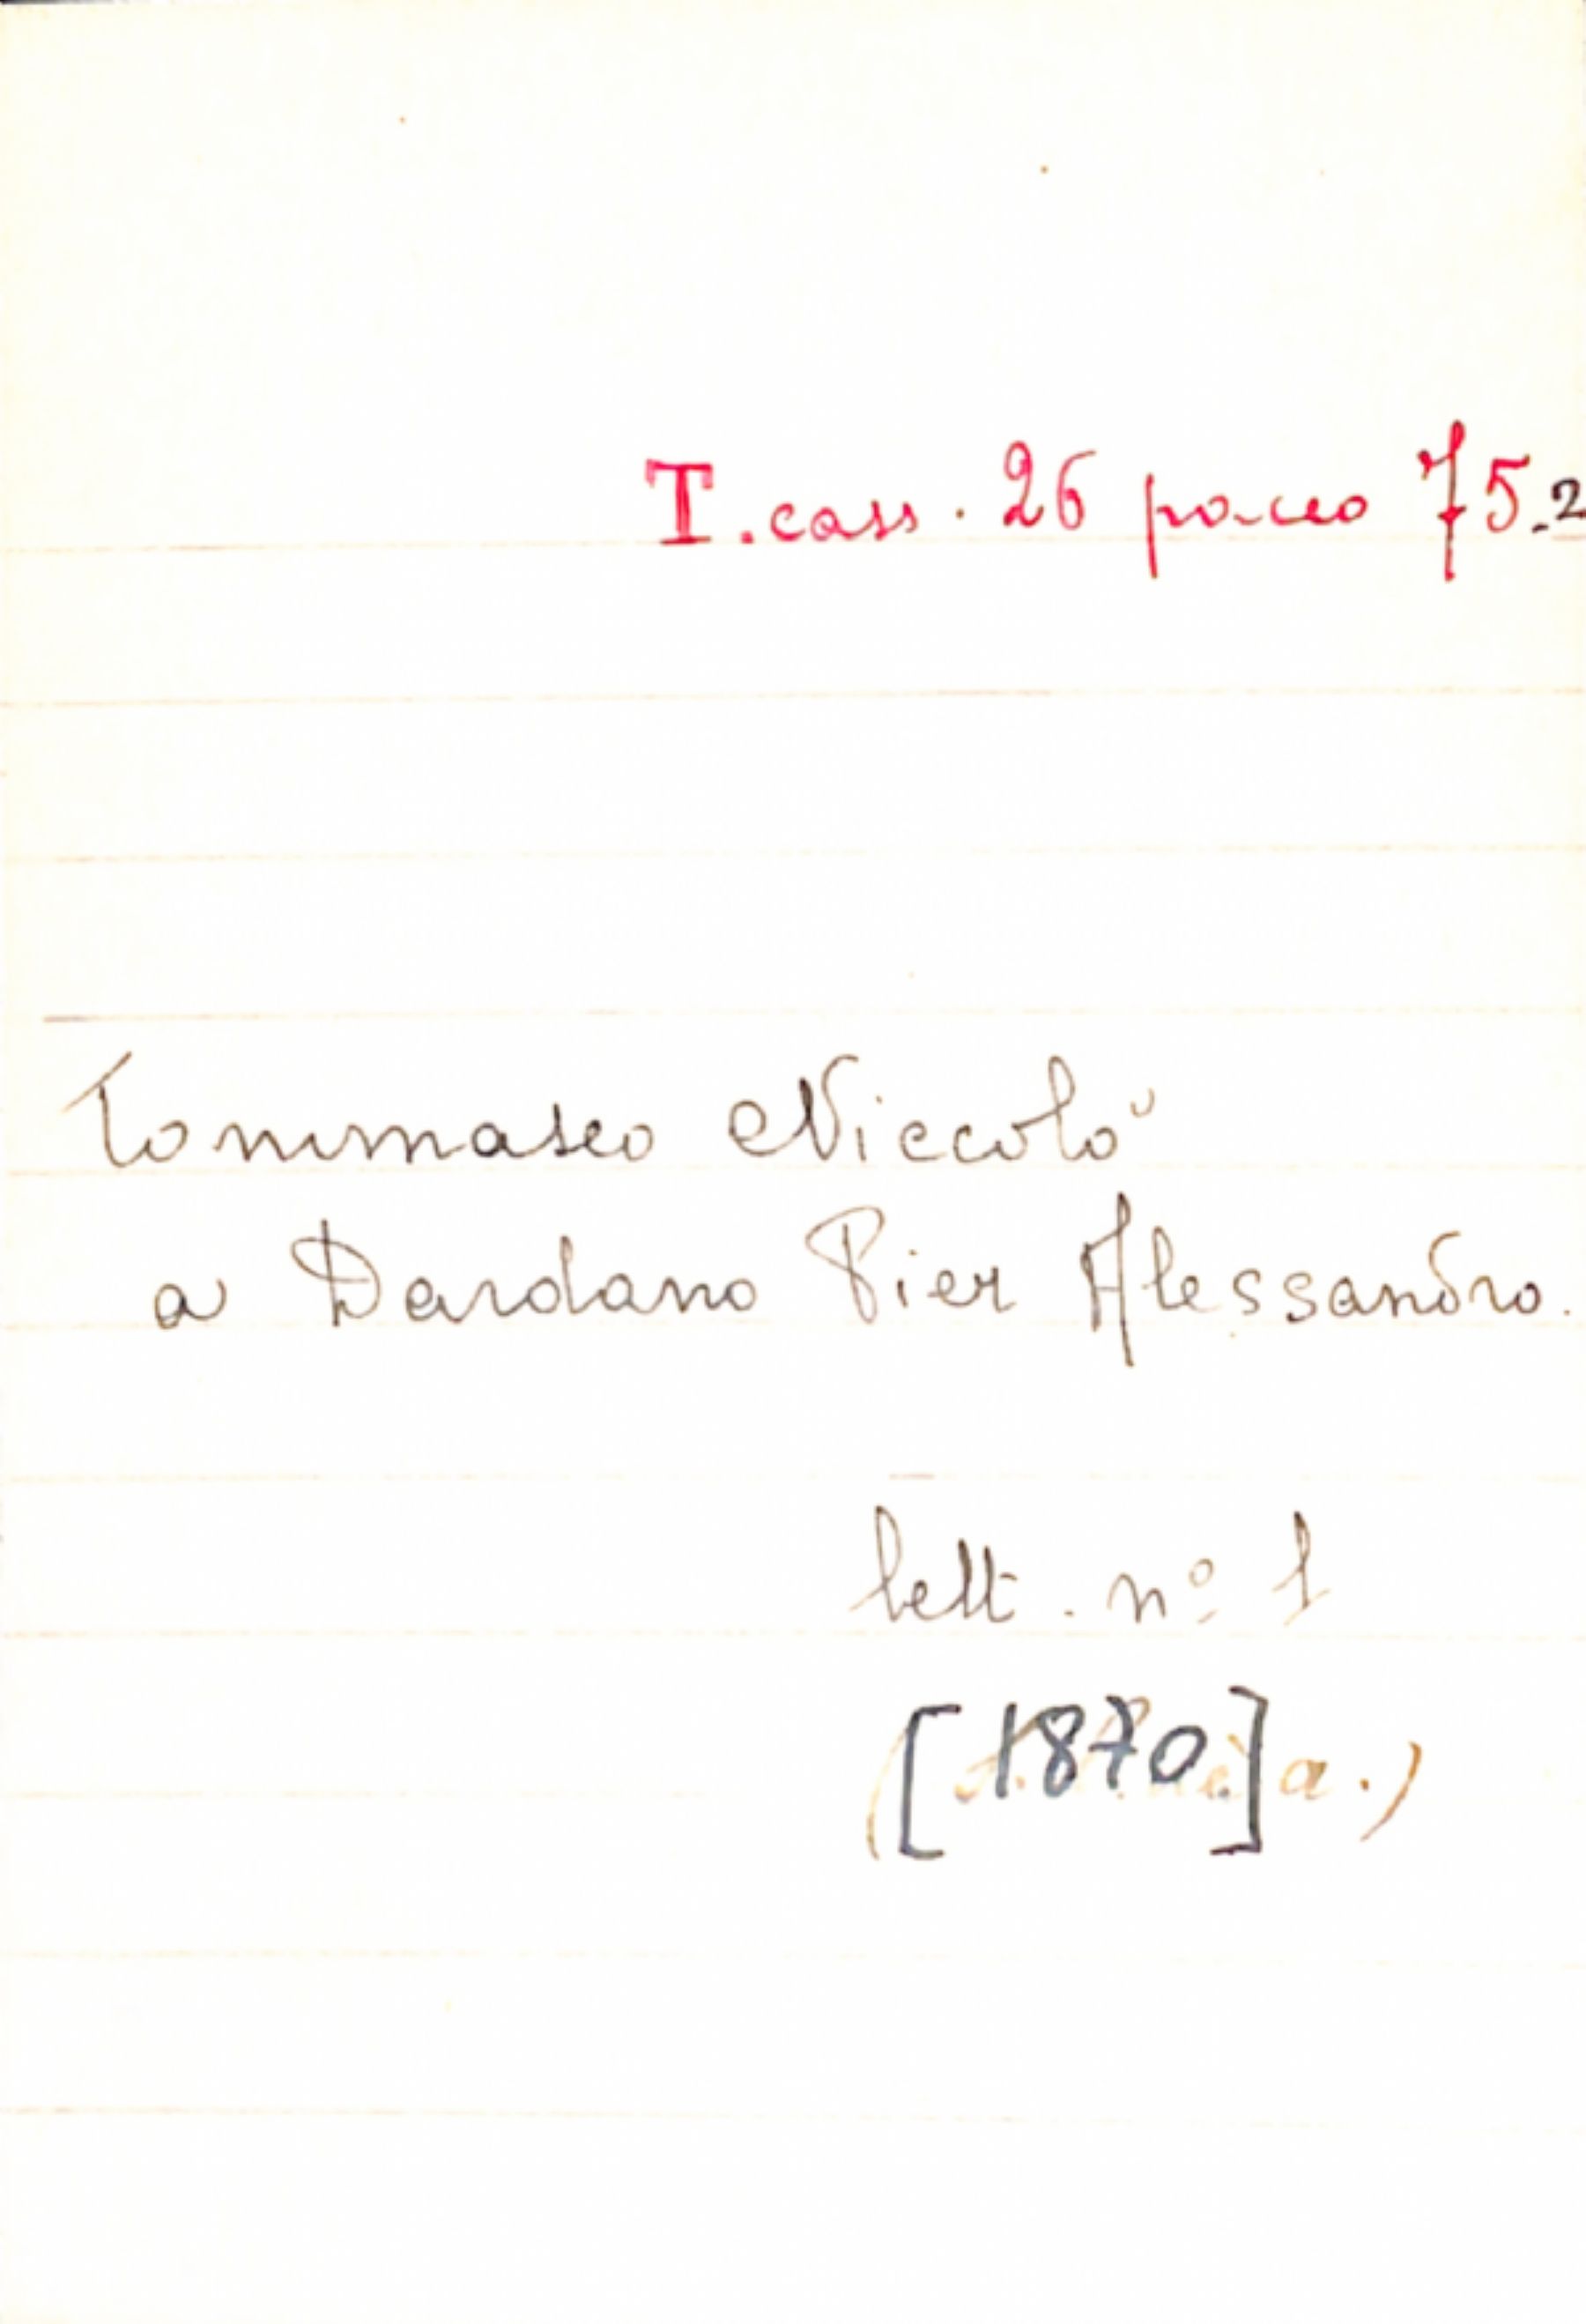 T. cass. 26 pacco 75.2
Tommaseo Niccolò
a Dardano Pier Alessandro.
lett. nº 1
[1870] a.)